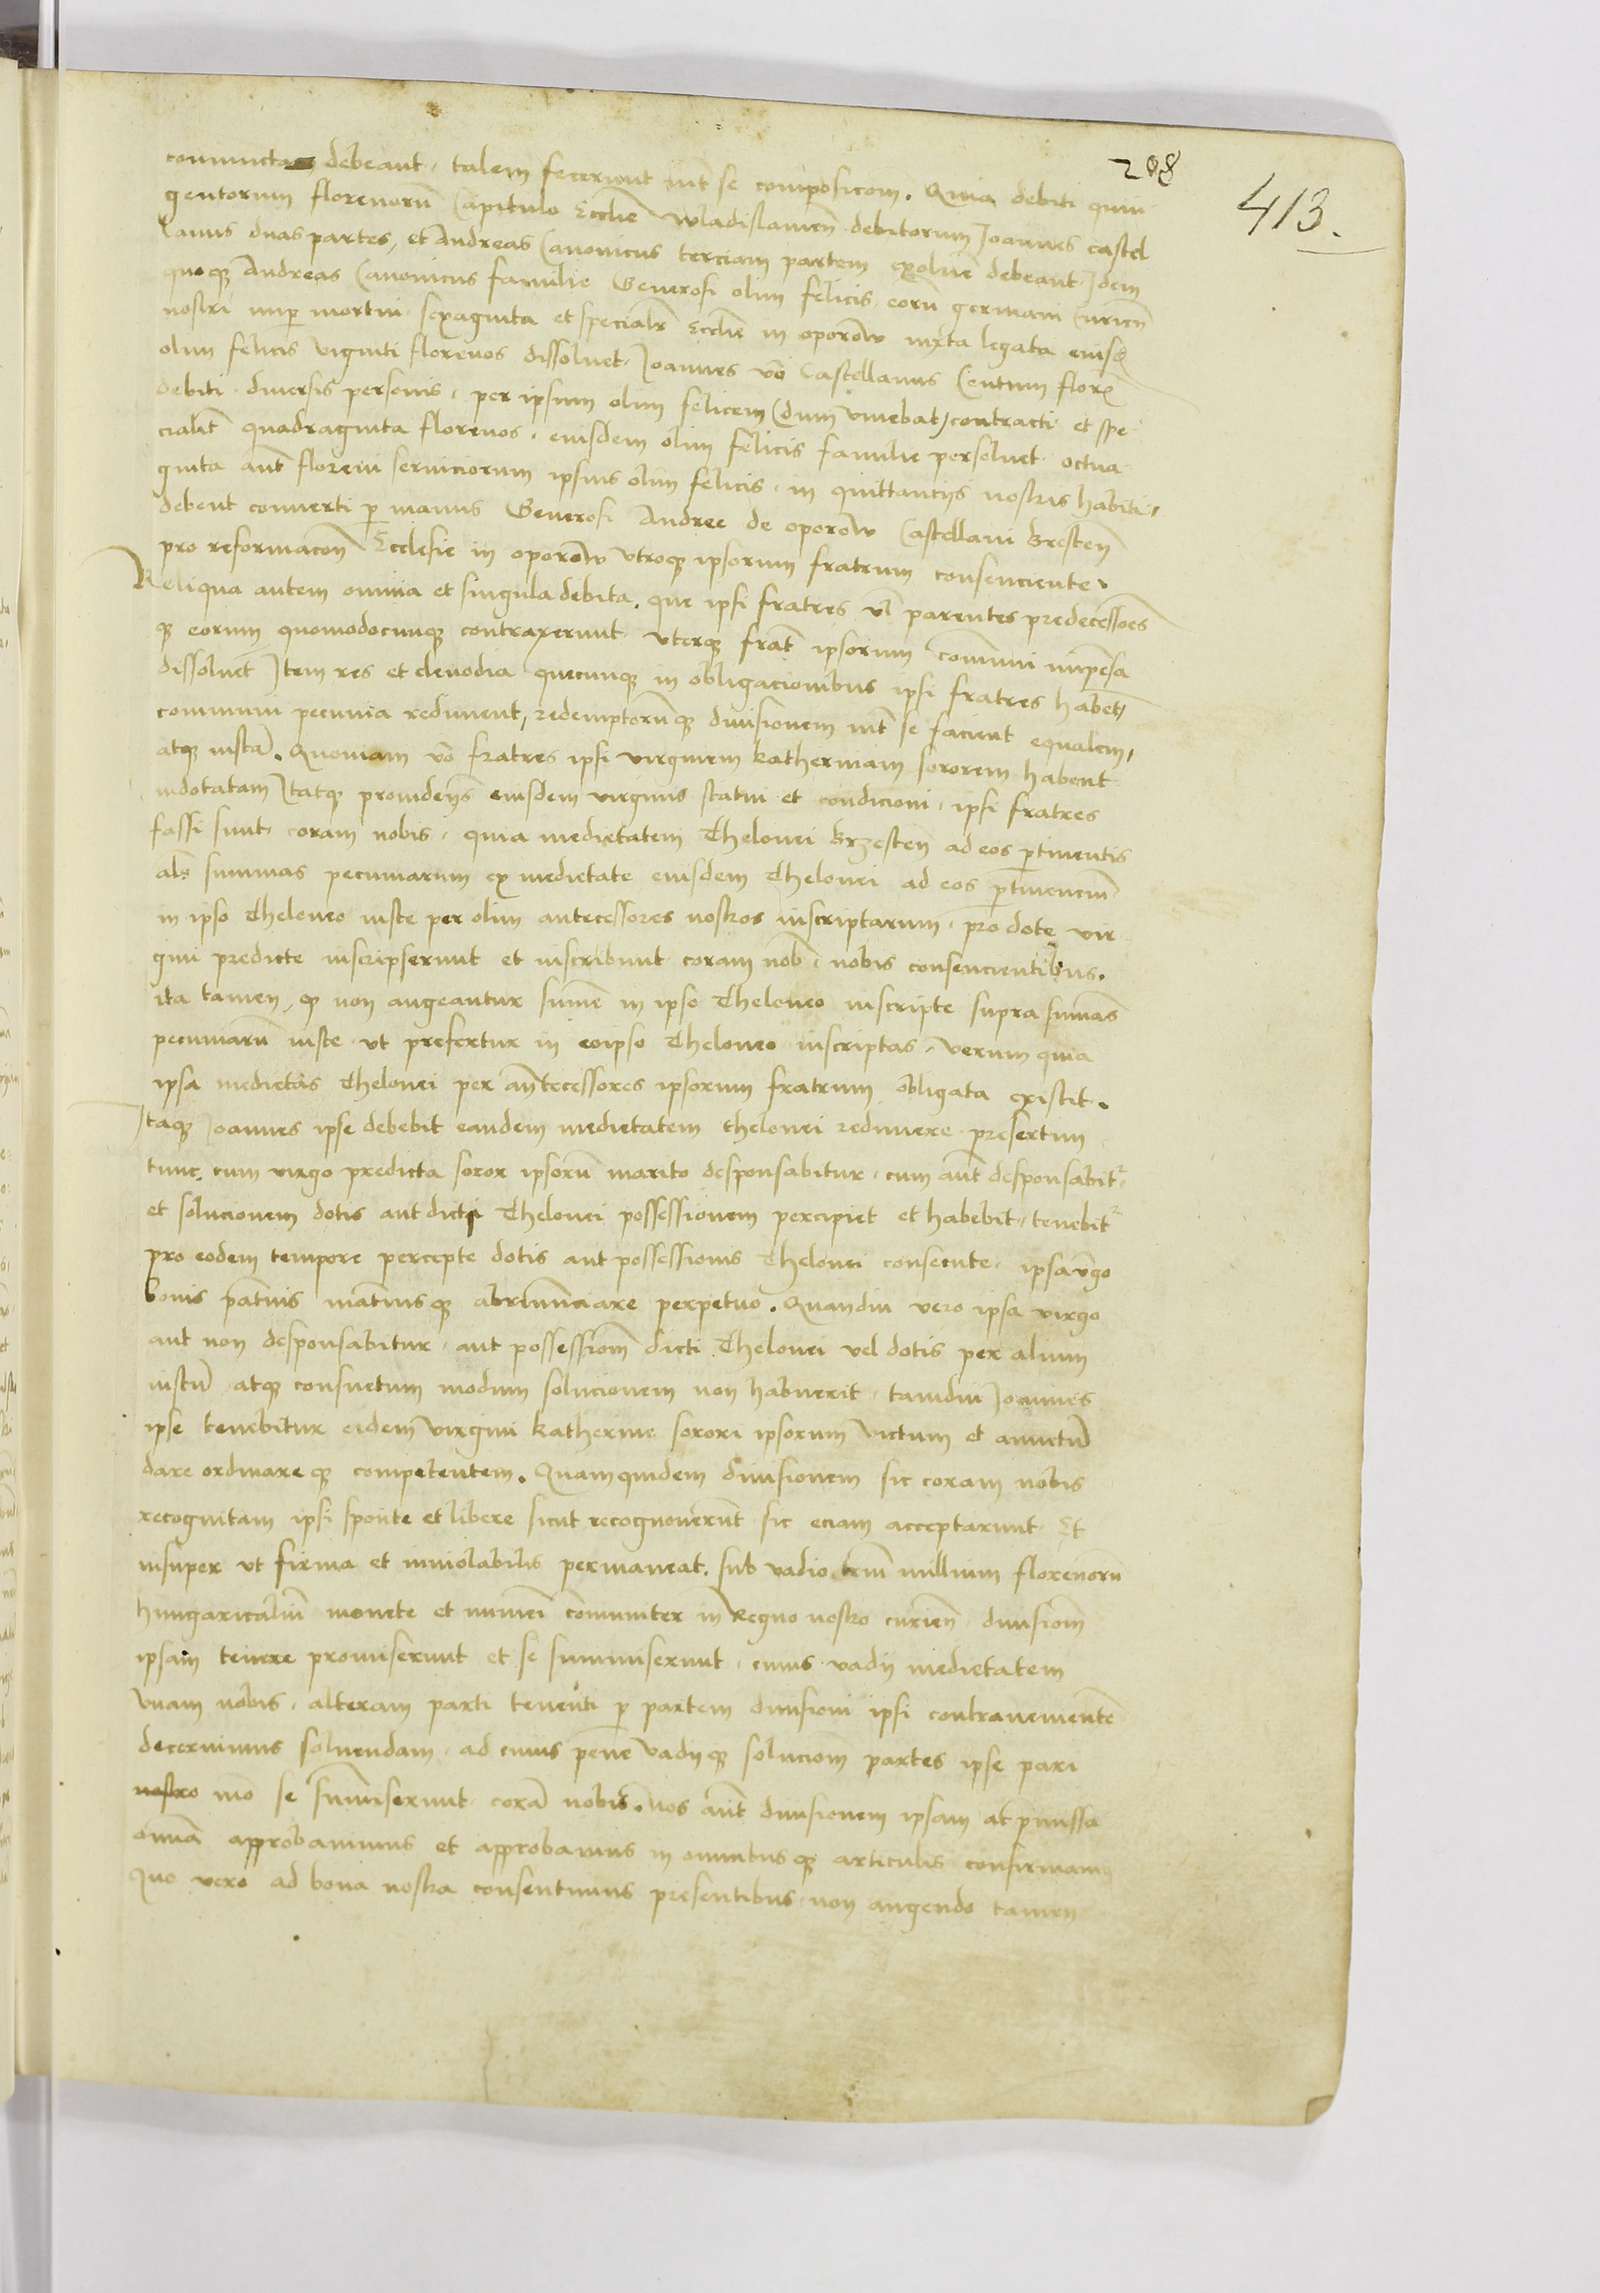 208
413.
conuicta debeant. talem fecerunt int se composicom. Quia debiti quin
gentorum florenorū Capitulo Ecclie Wladislauien debitorum Joannes castel
lanus duas partes, et Andreas Canonicus terciam partem exoluere debeant. Idem
quoque Andreas Canonicus familie Generosi olim felicis eorū germani Curien
nostri nup mortui sexaginta et specialr Ecclie in oporow iuxta legata eiusd
olim felicis viginti florenos dissoluet. Joannes vo Castellanus Centum flor
debiti. diuersis personis. per ipsum olim felicem (dum viuebat) contracti et spe
cialit quadraginta florenos. eiusdem olim felicis familie persoluet. octua
ginta aut floreni seruiciorum ipsius olim felicis. in quittancijs nostris habiti,
debent conuerti p manus Generosi Andree de oporow Castellani Bresten
pro reformacon Ecclesie in oporow vtroque ipsorum fratrum consenciente,
Reliqua autem omnia et singula debita. que ipsi fratres vl parentes predecessoes
que eorum quomodocunque contraxerunt. vterque frat ipsorum communi impensa
dissoluet. Item res et clenodia quecunque in obligacionibus ipsi fratres habent,
communi pecunia rediment, redemptorumque diuisionem int se facient equalem,
atque iustam. Quoniam vo fratres ipsi virginem Katherinam sororem habent
indotatam Itaque prouidentes eiusdem virginis statui et condicioni. ipsi fratres
fassi sunt coram nobis. quia medietatem Thelonei Brzesten ad eos ptinentis
als summas pecuniarum ex medietate eiusdem Thelonei ad eos ptinencium
in ipso Theloneo iuste per olim antecessores nostros inscriptarum. pro dote vir
gini predicte inscripserunt et inscribunt coram nob. nobis consencientibus.
ita tamen, que non augeantur summe in ipso Theloneo inscripte supra summas
pecuniarū iuste ut prefertur in eoipso Theloneo inscriptas. verum quia
ipsa medietas Thelonei per antecessores ipsorum fratrum obligata existit.
Itaque Joannes ipse debebit eandem medietatem thelonei redimere presertim
tunc. cum virgo predicta soror ipsorū marito desponsabitur. cum aut desponsabit
et solucionem dotis aut dicti Thelonei possessionem percipiet et habebit. tenebit
pro eodem tempore percepte dotis aut possessionis Thelonei consecute. ipsa virgo
bonis paternis maternisque abrenunciare perpetuo. Quandiu vero ipsa virgo
aut non desponsabitur. aut possessionem dicti Thelonei vel dotis per alium
iustū atque consuetum modum solucionem non habuerit. tamdiu Joannes
ipse tenebitur eidem virgini Katherine sorori ipsorum victum et amictū
dare ordinareque competentem. Quamquidem diuisionem sic coram nobis
recognitam ipsi sponte et libere sicut recognouerunt sic eciam acceptarunt. Et
insuper ut firma et inuiolabilis permaneat. sub vadio trium millium florenorū
hungaricalium monete et numeri communiter in Regno nostro curien. diuisiom
ipsam tenere promiserunt et se summiserunt. cuius vadij medietatem
vnam nobis. alteram parti tenenti p partem diuisioni ipsi contrauenientem
decernimus soluendam. ad cuius pene vadijque soluciom partes ipse pari
nostro mo se summiserunt coram nobis. nos aut diuisionem ipsam ac pmissa
omnia approbauimus et approbamus in omnibusque articulis confirmamus
Quo vero ad bona nostra consentimus presentibus. non augendo tamen